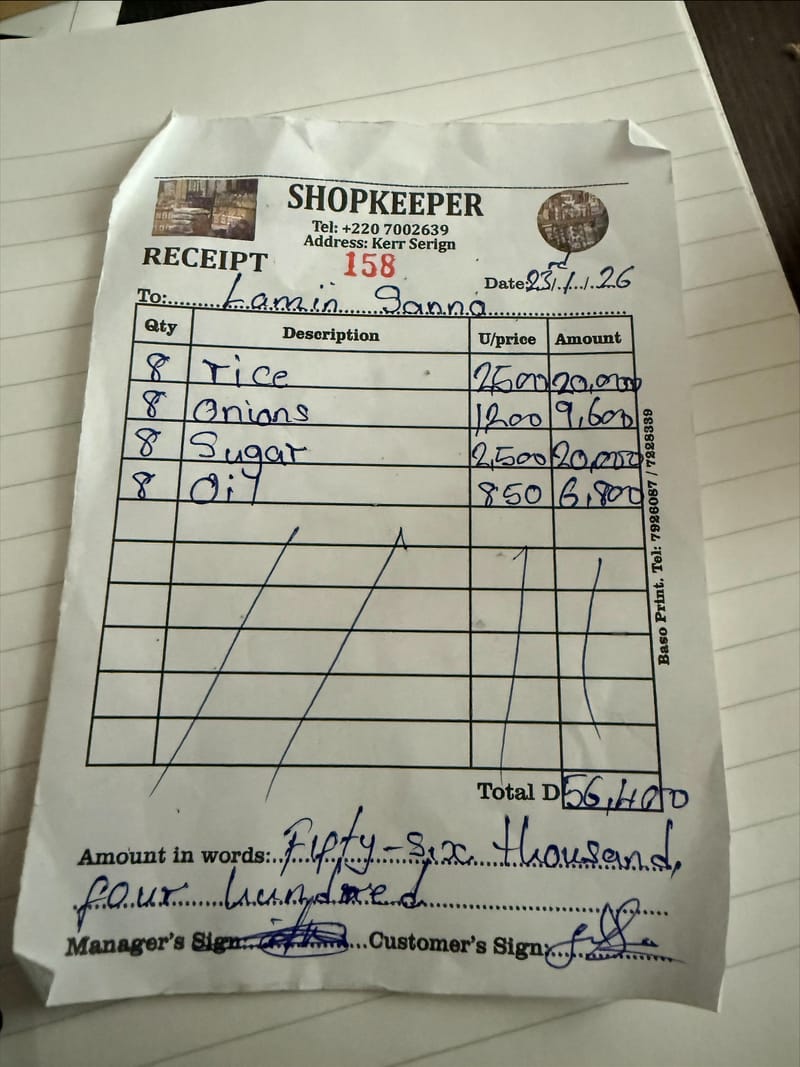 SHOPKEEPER
Tel: +220 7002639
Address: Kerr Serign
RECEIPT 158
Date: 23rd/1/26
To: Lamin Sanna
Qty Description U/price Amount
8 rice 2500 20,000
8 Onions 1200 9,600
8 Sugar 2,500 20,000
8 Oil 850 6,800
Total D 56,400
Amount in words: Fifty-six thousand,
four hundred
Manager's Sign: Customer's Sign:
Baso Print. Tel: 7926087 / 7228339